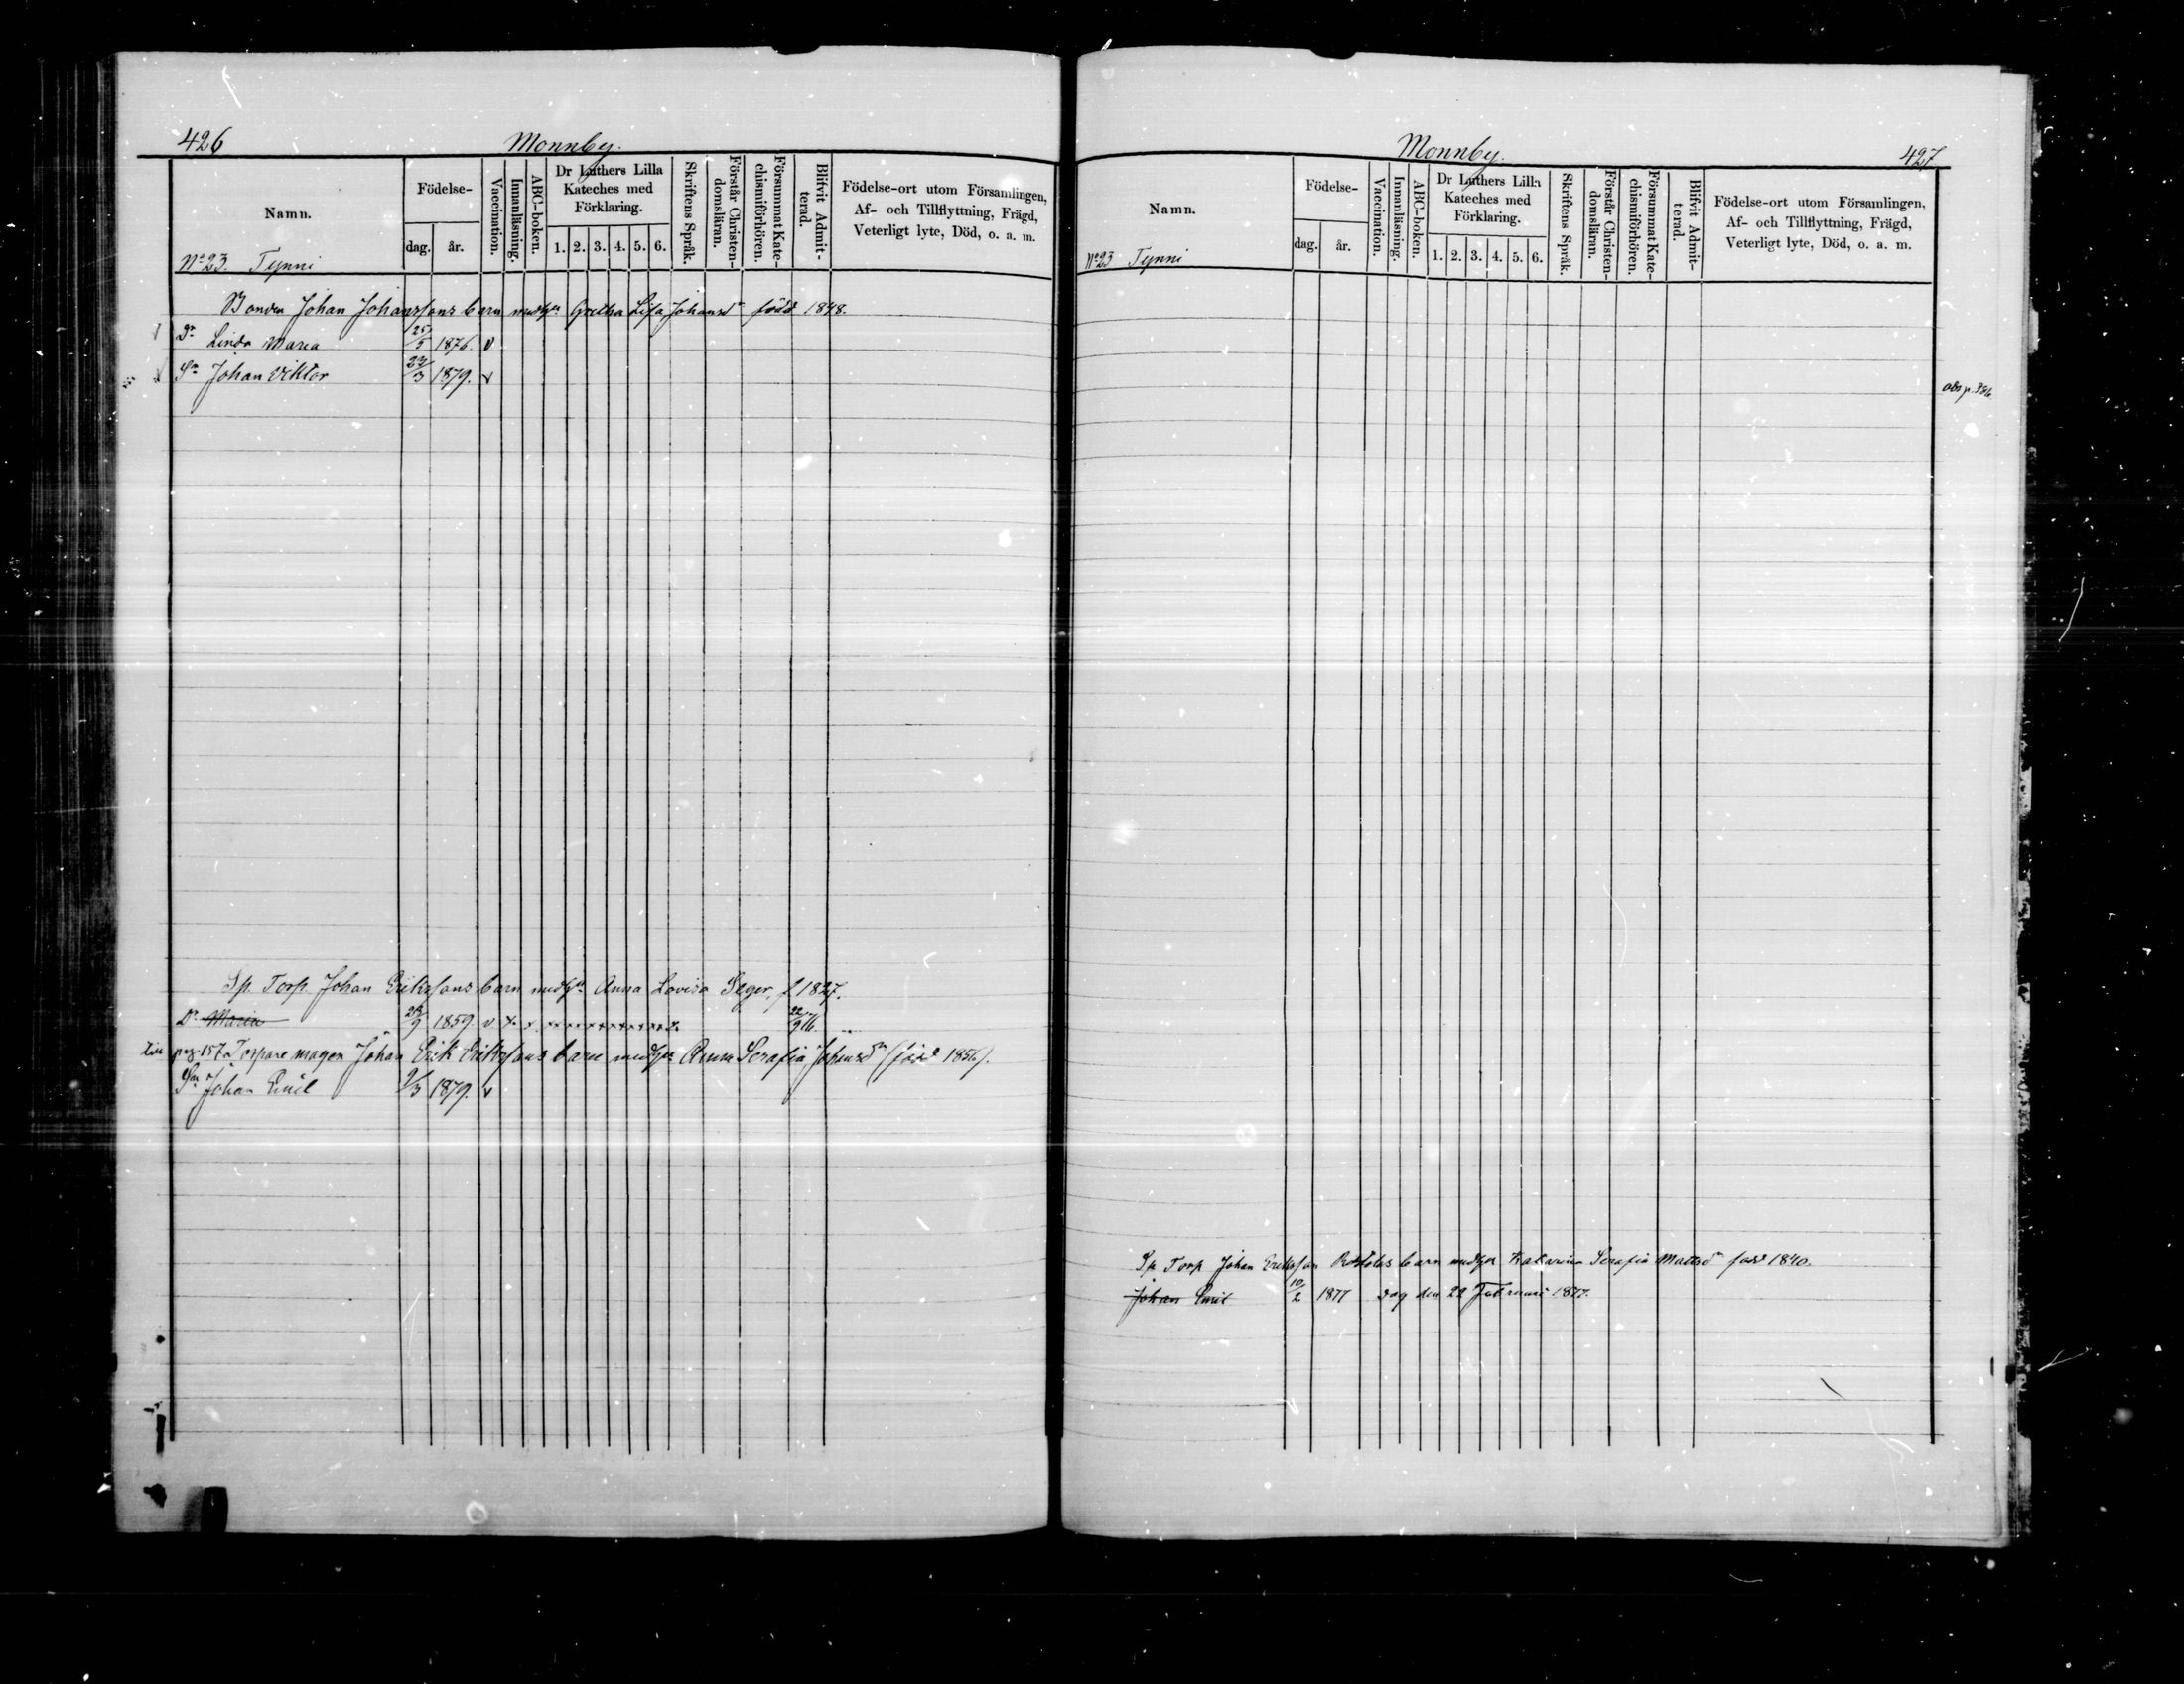 426
Monnby.
Namn.
Födelse-
dag.
år.
Vaccination.
Innanläsning.
ABC-boken.
Dr Luthers Lilla
Kateches med
Förklaring.
1. 2. 3. 4. 5. 6.
Skriftens Språk.
Förstår Christen-
domsläran.
Försummat Kate-
chismiförhören.
Blifvit Admit-
terad.
Födelse-ort utom Församlingen,
Af- och Tillflyttning, Frägd,
Veterligt lyte, Död, o. a. m.
No 23. Tynni
Bonden Johan Johanssons barn med hu Gretha Lisa Johansdr född 1848.
Dr Linda Maria 25/5 1876. v
Sn Johan Viktor 1879. v
Sp. Torp. Johan Erikssons barn med hu Anna Lovisa Seger, f 1827.
Dr Maria 1859. v x x x x x x x x x x x 22/9 76.
pag. 157 Torpare magen Johan Erik Erikssons barn med hu Anna Serafia Johansdr (född 1856).
Sn Johan Emil 9/3 1879. v
Monnby.
427
Namn.
Födelse-
dag.
år.
Vaccination.
Innanläsning.
ABC-boken.
Dr Luthers Lilla
Kateches med
Förklaring.
1. 2. 3. 4. 5. 6.
Skriftens Språk.
Förstår Christen-
domsläran.
Försummat Kate-
chismiförhören.
Blifvit Admit-
terad.
Födelse-ort utom Församlingen,
Af- och Tillflyttning, Frägd,
Veterligt lyte, Död, o. a. m.
No 23 Tynni
Sp Torp Johan Eriksson barn med hu Katarina Serafia Matsdr född 1840.
Johan Emil 10/2 1877 dog den 22 Februari 1877.